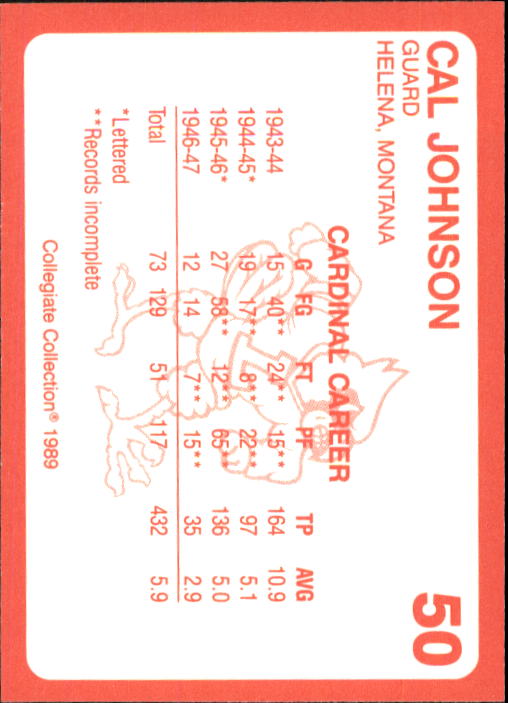 CAL JOHNSON 50
GUARD
HELENA, MONTANA
CARDINAL CAREER
G FG FT PF TP AVG
1943-44 15 40** 24** 15** 164 10.9
1944-45* 19 17** 8** 22** 97 5.1
1945-46* 27 58** 12** 65** 136 5.0
1946-47 12 14 7** 15** 35 2.9
Total 73 129 51 117 432 5.9
*Lettered
**Records incomplete
Collegiate Collection® 1989